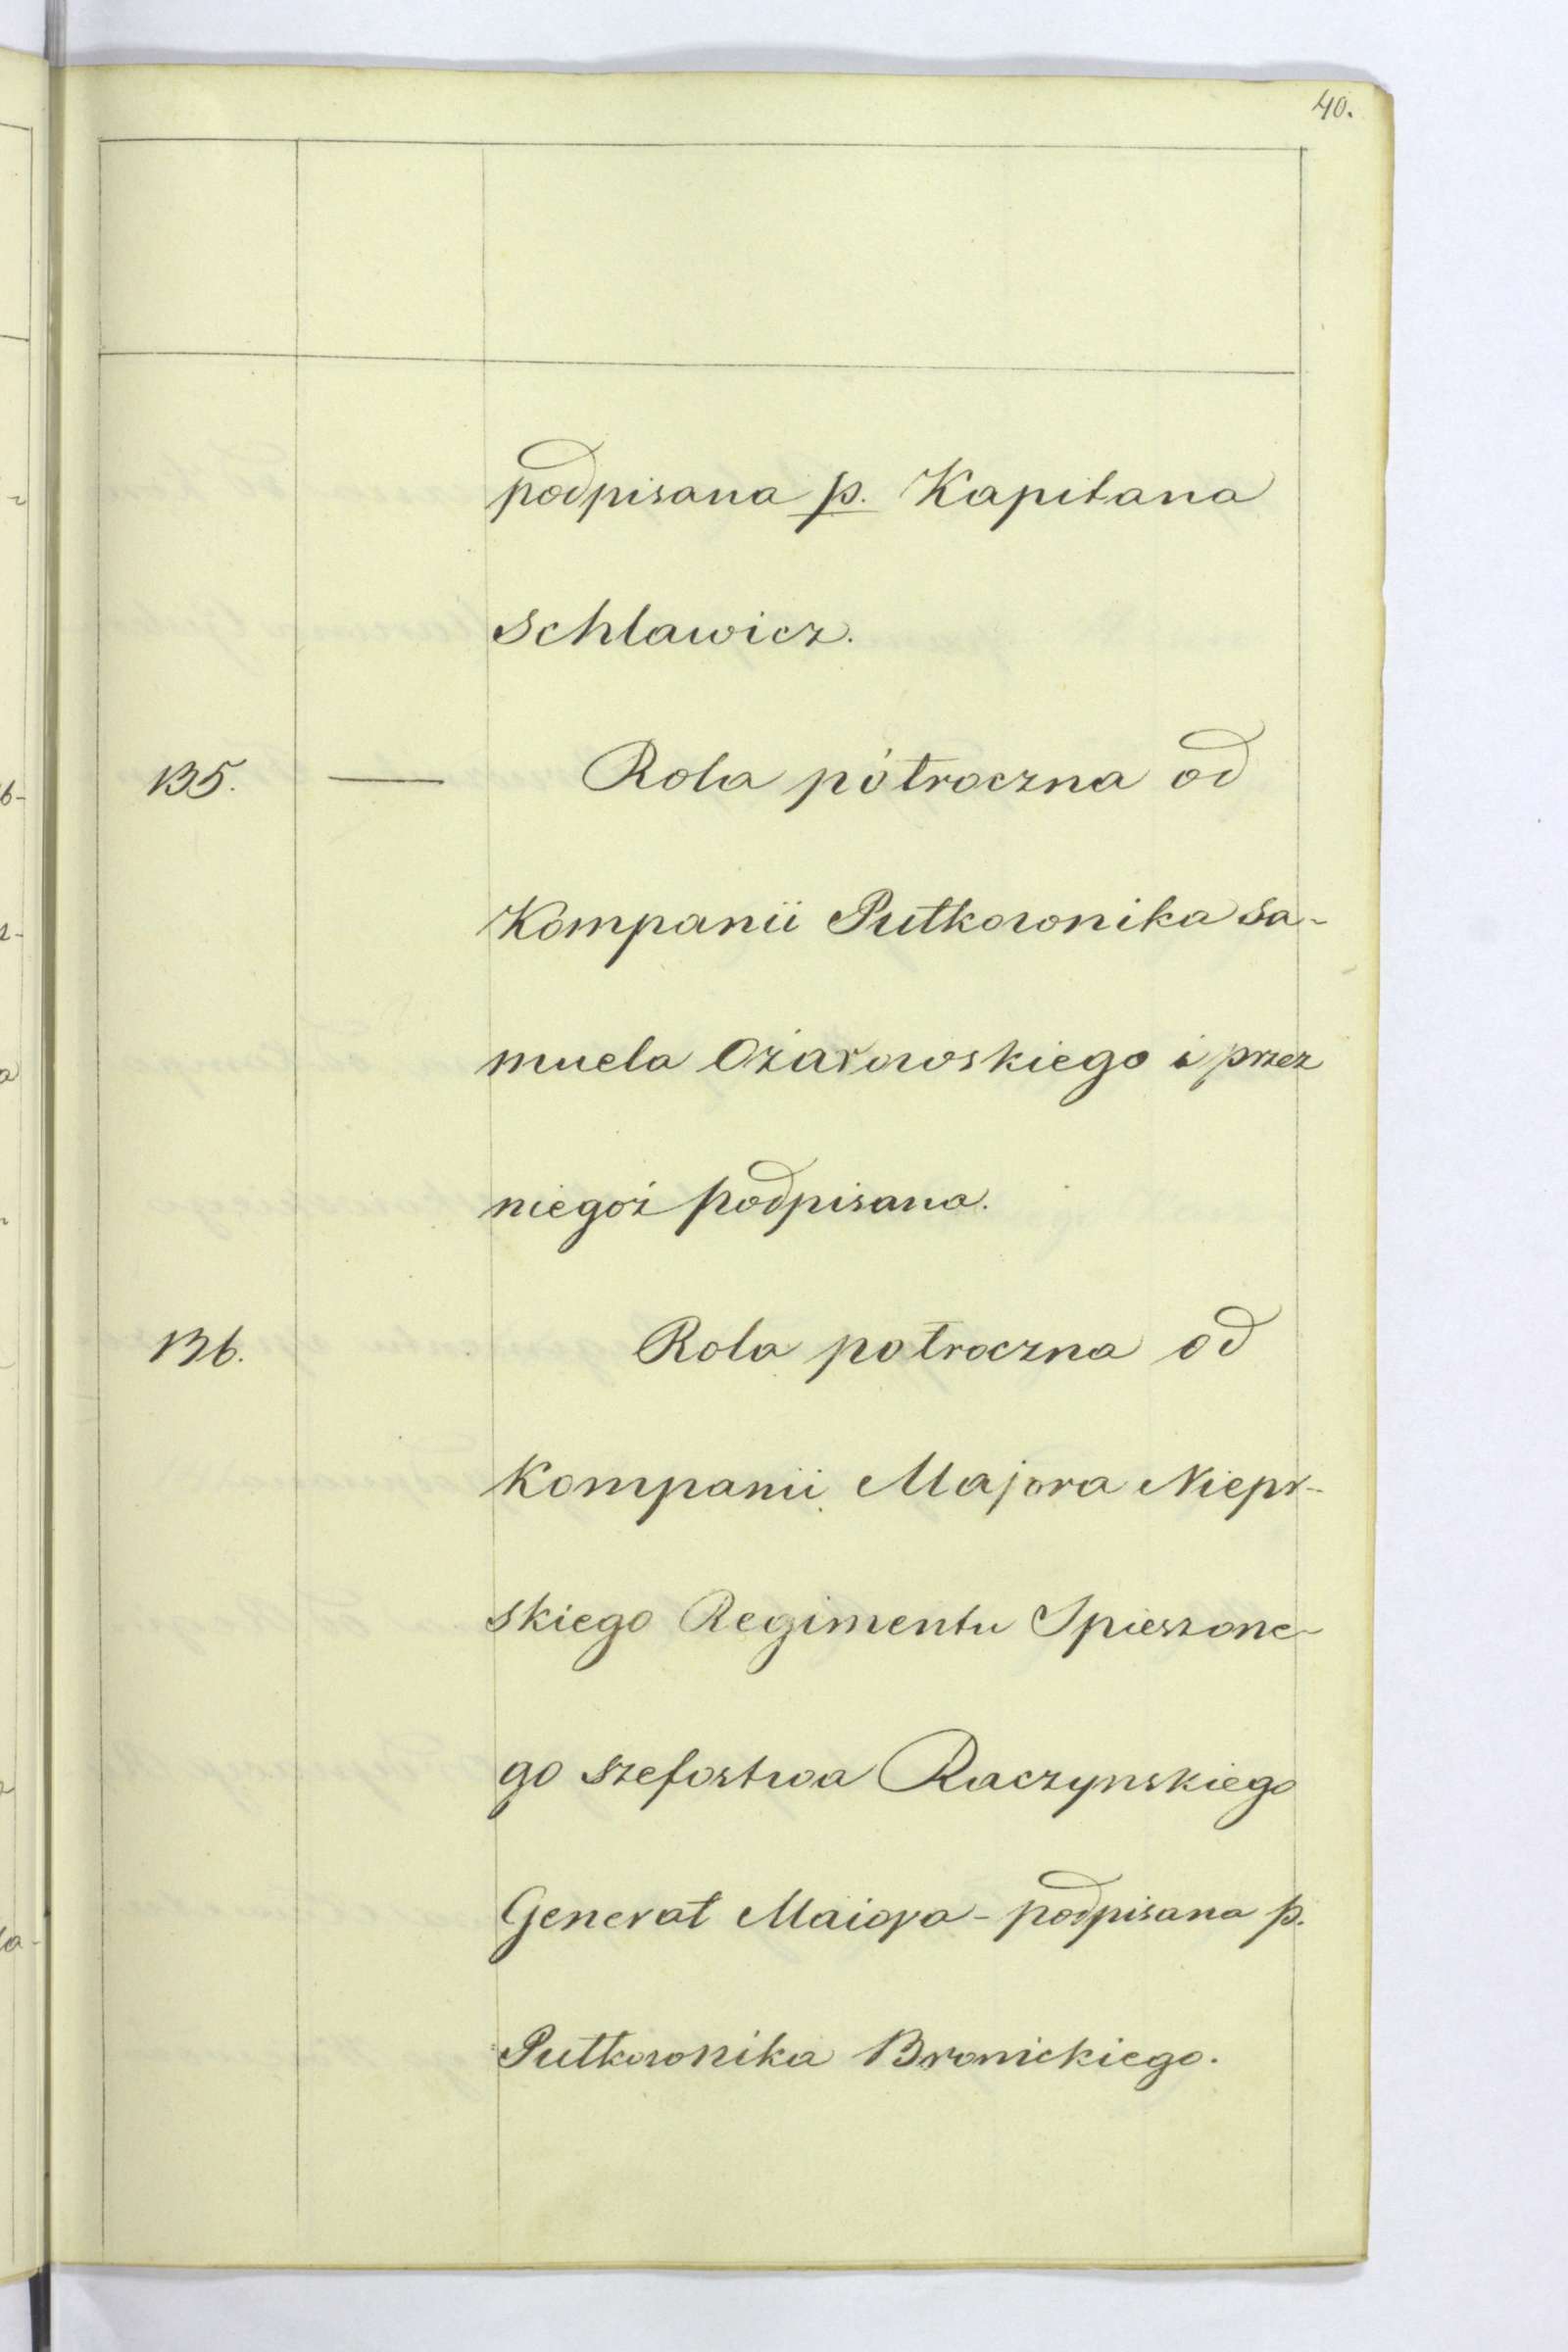 40.
podpisana p. Kapitana
Schlawicz.
135. — Rola pótroczna od
Kompanii Pułkownika Sa-
muela Ożarowskiego i przez
niegoż podpisana.
136. Rola połroczna od
Kompanii Majora Niepr-
skiego Regimentu Spieszone-
go szefostwa Raczynskiego
Generał Maiora - podpisana p.
Pułkownika Bronickiego.